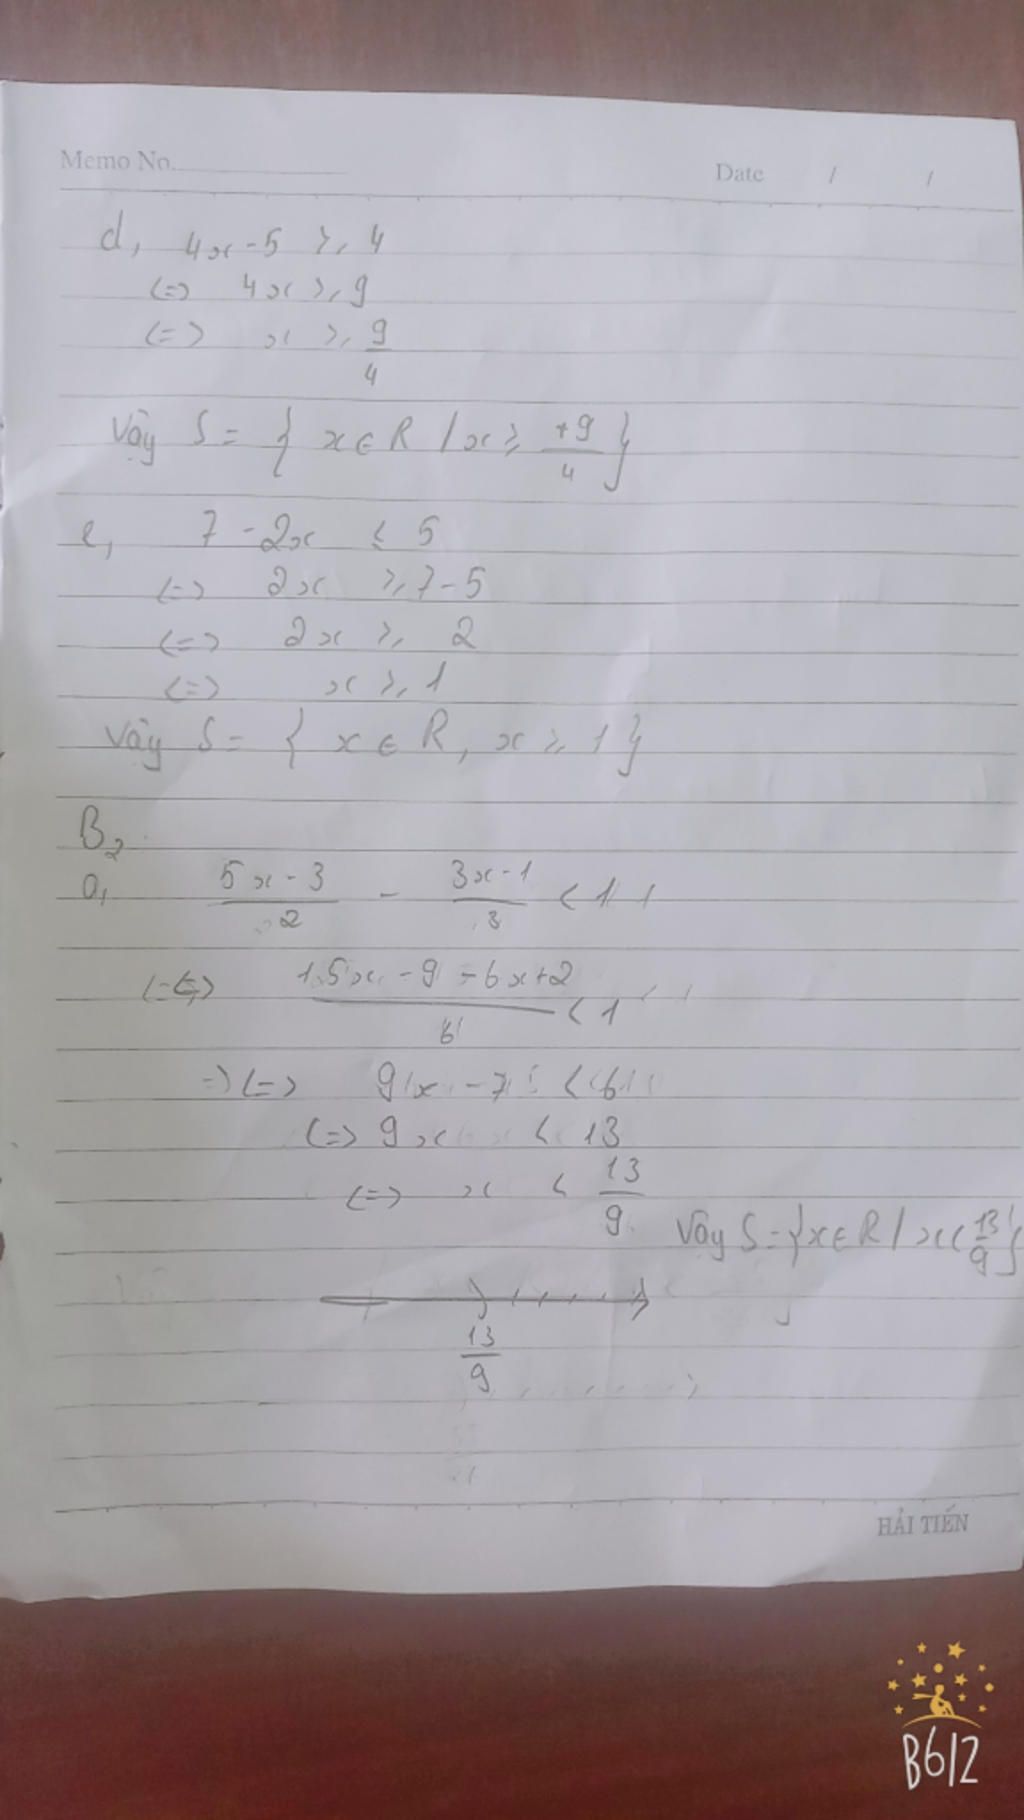 Memo No.
Date / /
d, 4x - 5 ≥ 4
<=> 4x ≥ 9
<=> x ≥ 9/4
Vậy S = { x ∈ R / x ≥ +9/4 }
e, 7 - 2x ≤ 5
<=> 2x ≥ 7 - 5
<=> 2x ≥ 2
<=> x ≥ 1
Vậy S = { x ∈ R, x ≥ 1 }
B2
a, (5x - 3)/2 - (3x - 1)/3 < 1
<=> (15x - 9 - 6x + 2)/6 < 1
=> <=> 9x - 7 < 6
<=> 9x < 13
<=> x < 13/9
Vậy S = { x ∈ R / x < 13/9 }
13/9
HẢI TIẾN
B612